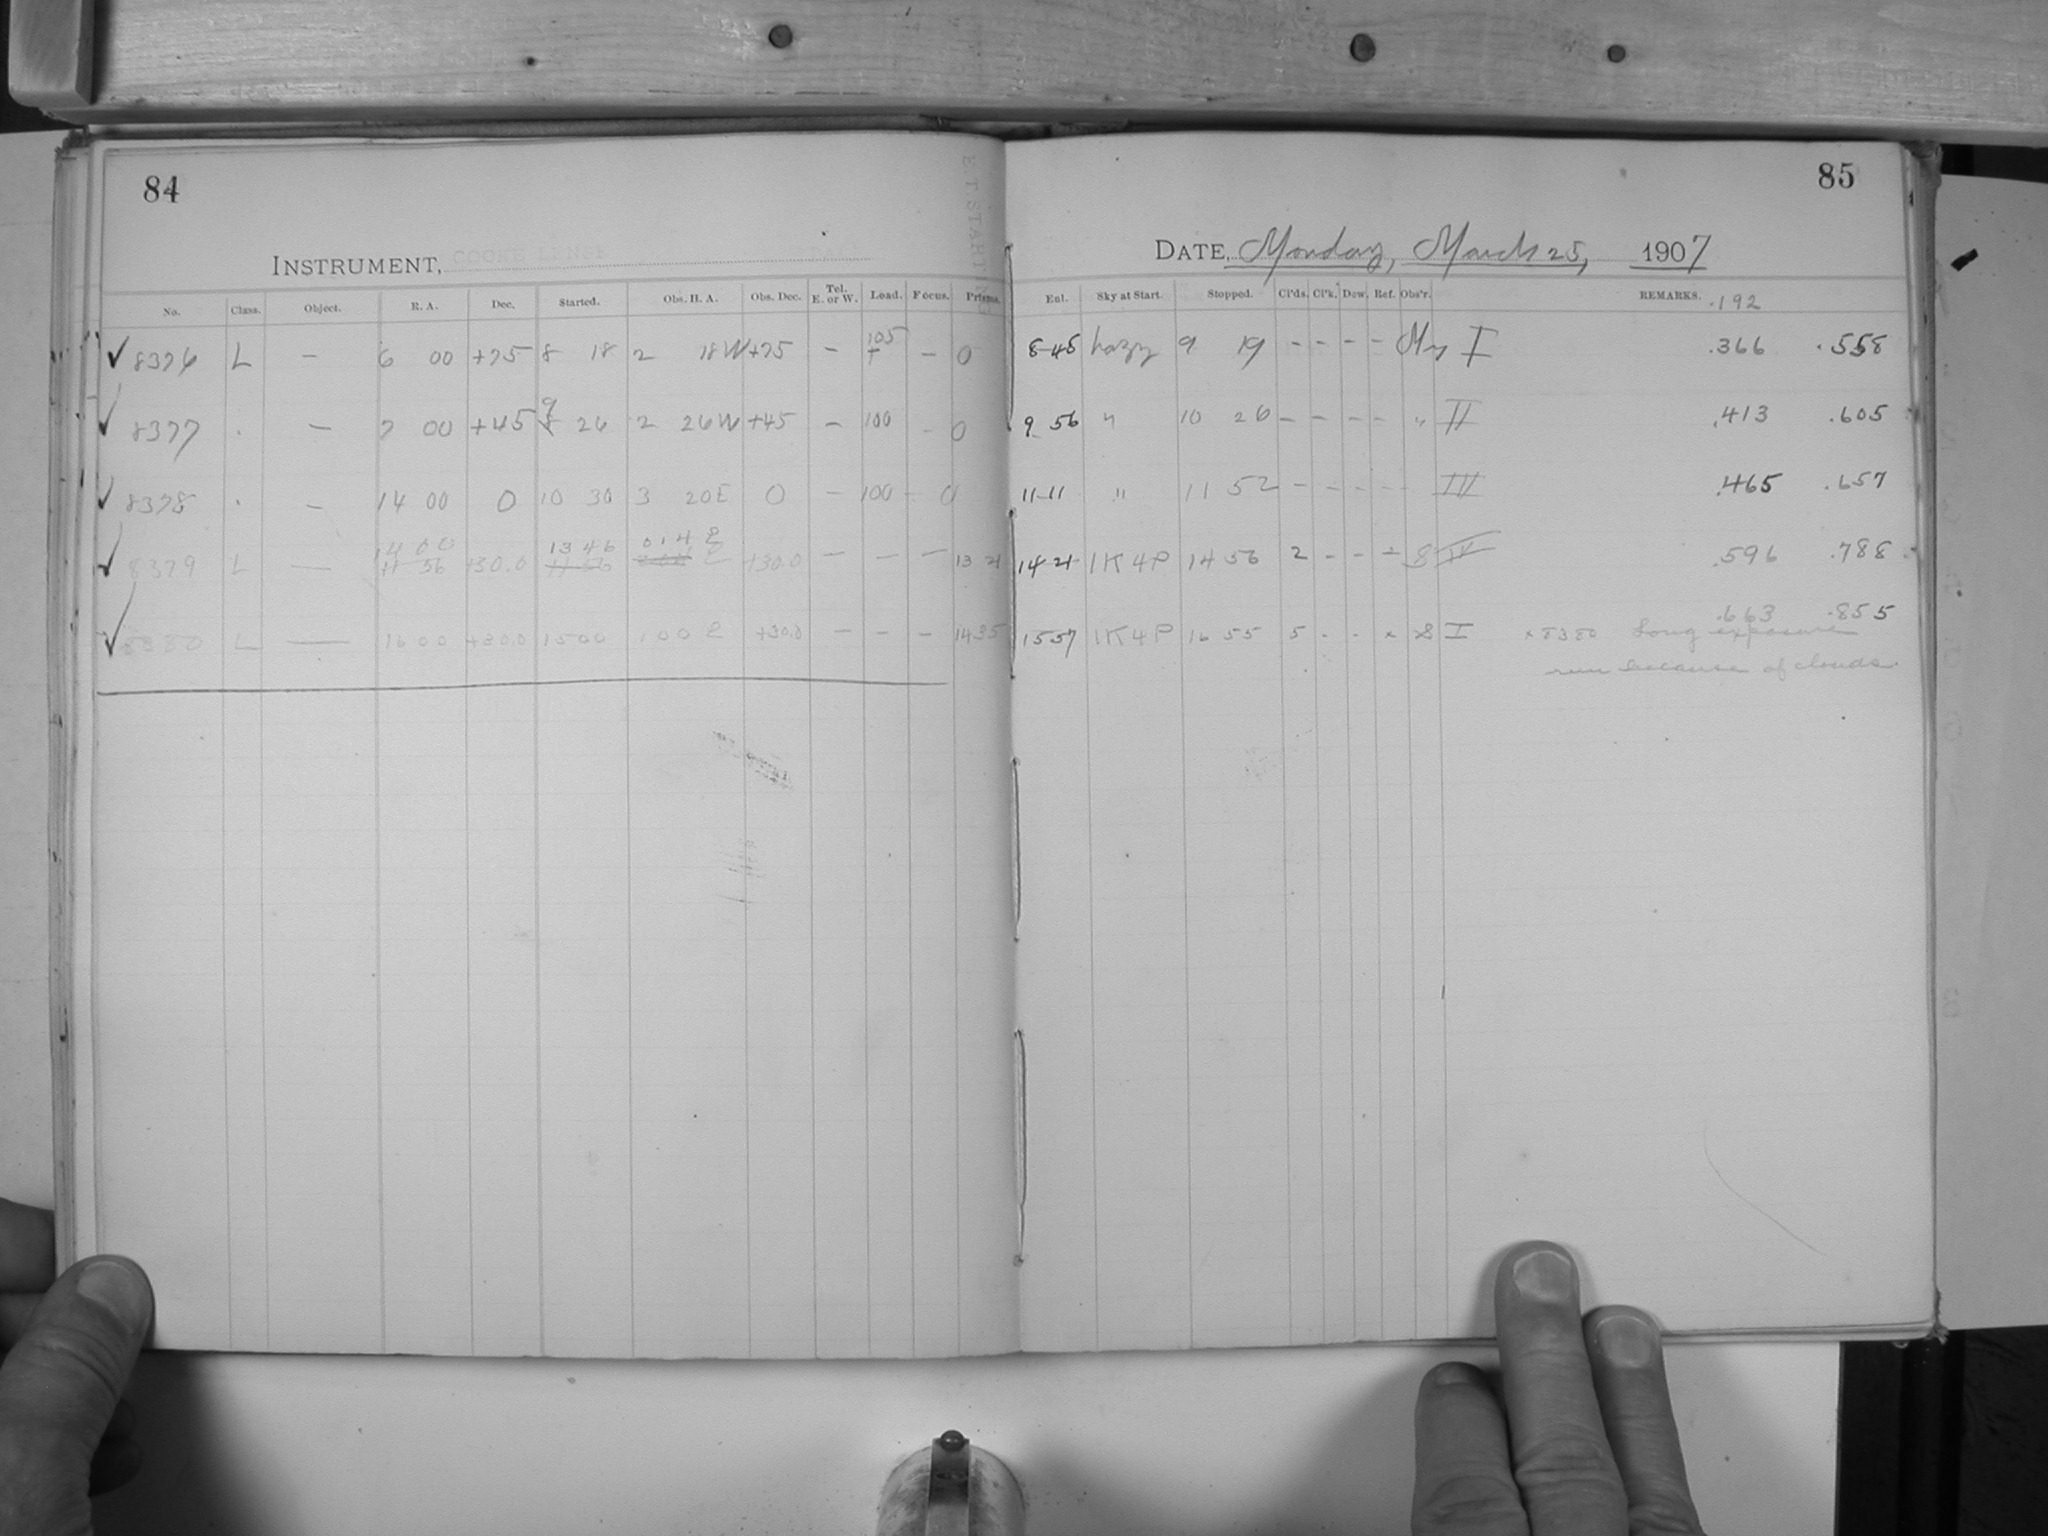 84
INSTRUMENT, COOKE LENSE
No. Class. Object. R. A. Dec. Started. Obs. H. A. Obs. Dec. Tel. E. or W. Load. Focus. Prisms.
✓ 8376 L — 6 00 +75 8 18 2 18 W +75 — 105 + — 0
✓ 8377 . — 7 00 +45 9 26 2 26 W +45 — 100 - 0
✓ 8378 . — 14 00 0 10 30 3 20 E 0 — 100 - 0
14 00 13 46 0 14 E
✓ 8379 L — 11 56 +30.0 11 56 E +30.0 — — — 13 21
✓ 8380 L — 16 00 +30.0 15 00 1 00 E +30.0 — — — 14 35
85
DATE, Monday, March 25, 1907
Ent. Sky at Start. Stopped. Cl'ds. Cl'k. Dew. Ref. Obs'r. REMARKS. .192
8-45 hazy 9 19 - - - - My I .366 .558
9 56 " 10 26 - - - - " II .413 .605
11-11 " 11 52 - - - - III .465 .657
14 21 1K4P 14 56 2 - - - S IV .596 .788
.663 .855
15 57 1K4P 16 55 5 - - × S I × 8380 Long exposure
run because of clouds.